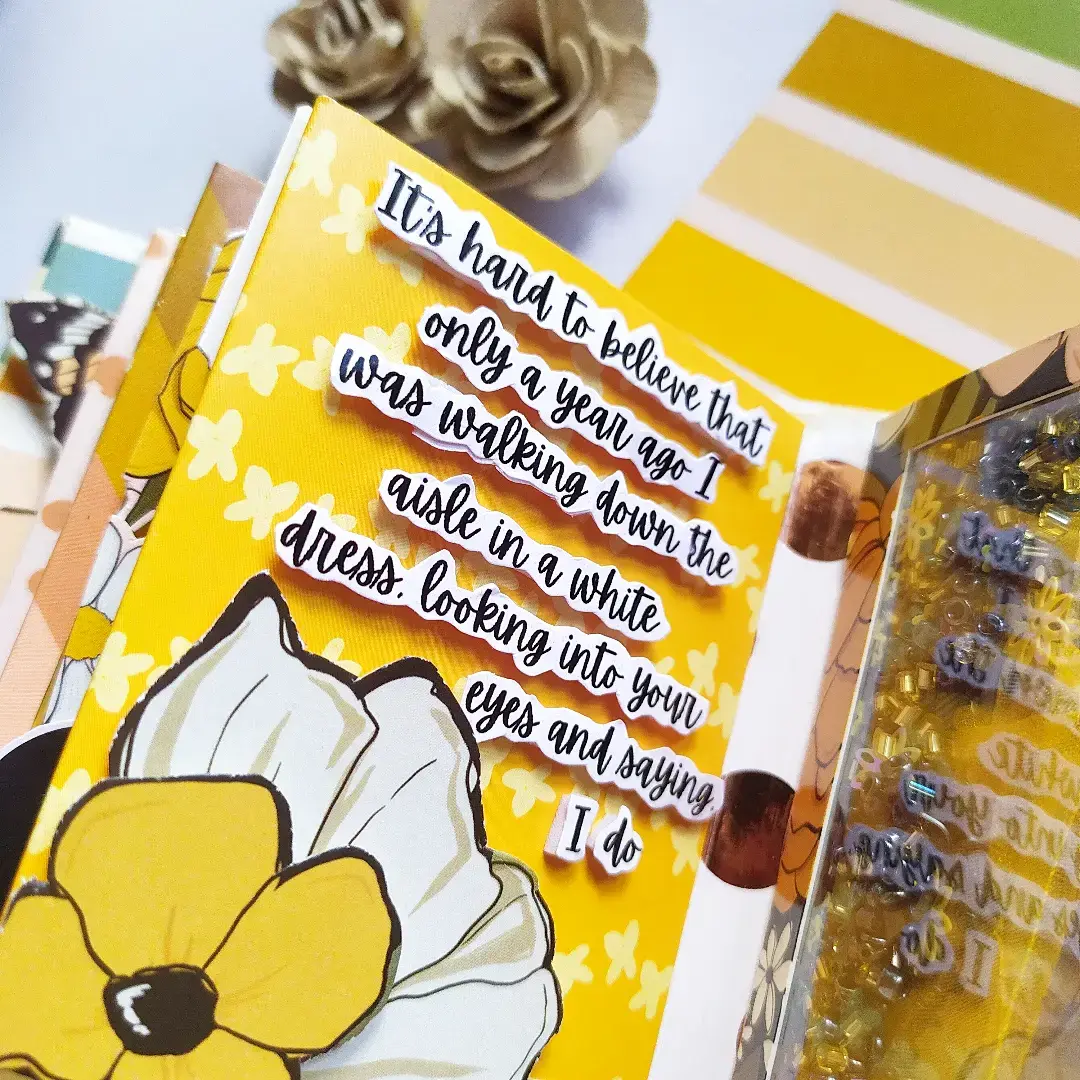 It's hard to believe that
only a year ago I
was walking down the
aisle in a white
dress, looking into your
eyes and saying,
I do